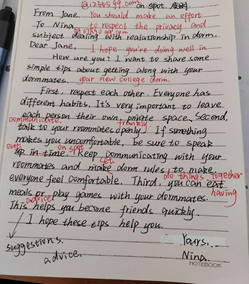 @12345 99.com on spot
From Jane. You should make an effort
To Nina. and respect the privacy and
subject Dealing with relationship in dorm.
Dear Jane. I hope you're doing well in
How are you? I want to share some
your new college dorm.
simple tips about getting along with your
dormmates.
First, respect each other. Everyone has
different habits. It's very important to leave
each person their own private space. Second,
communicate frankly
talk to your roommates openly. If something
makes you uncomfortable, be sure to speak
on spot
up in time. Keep communicating with your
set
roommates and make dorm rules to make
do things together
everyone feel comfortable. Third, you can eat
having
meals or play games with your dormmates.
advice
This helps you become friends quickly.
I hope these tips help you.
suggestions. Yours,
advice. Nina.
NOTEBOOK